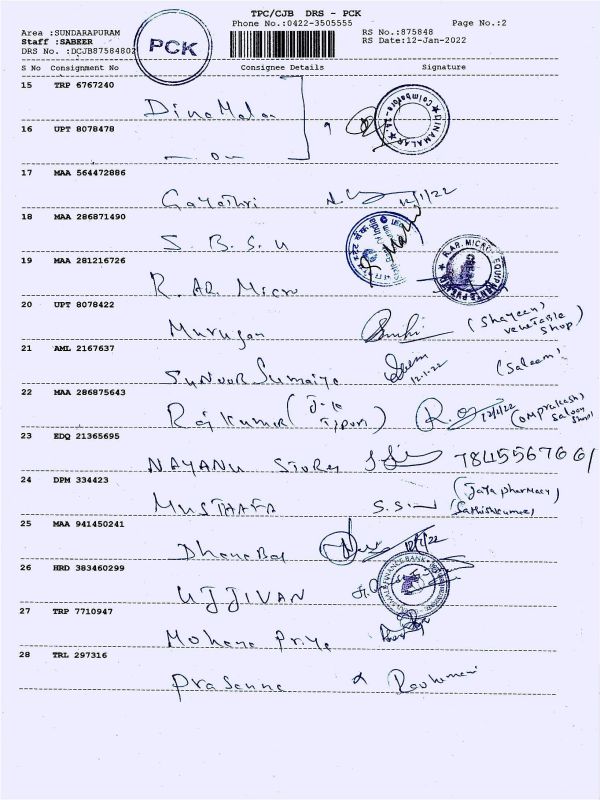 TPC/CJB DRS - PCK
Phone No.:0422-3505555
Page No.:2
Area :SUNDARAPURAM
RS No.:875848
Staff :SABEER
RS Date:12-Jan-2022
DRS No. :DCJB87584802
PCK
S No Consignment No Consignee Details Signature
15 TRP 6767240
DINAMALAR
16 UPT 8078478
17 MAA 564472886
Gayathri 12/1/22
18 MAA 286871490
S. B. S. U
19 MAA 281216726
R. AR. Micro
R.AR. MICRO EQUIPMENTS PVT
20 UPT 8078422
Murugan (Shayeen) vegetable shop)
21 AML 2167637
12.1.22 (Saleem)
22 MAA 286875643
Raj Kumar 12/1/22 (Omprakash) Saloon shop)
23 EDQ 21365695
NAYANU Stores
24 DPM 334423
MUSTHAFA (Jaya pharmacy)
(Sathishkumar)
25 MAA 941450241
12/1/22
26 HRD 383460299
UJJIVAN
27 TRP 7710947
Mohana Priya
28 TRL 297316
Prasanna